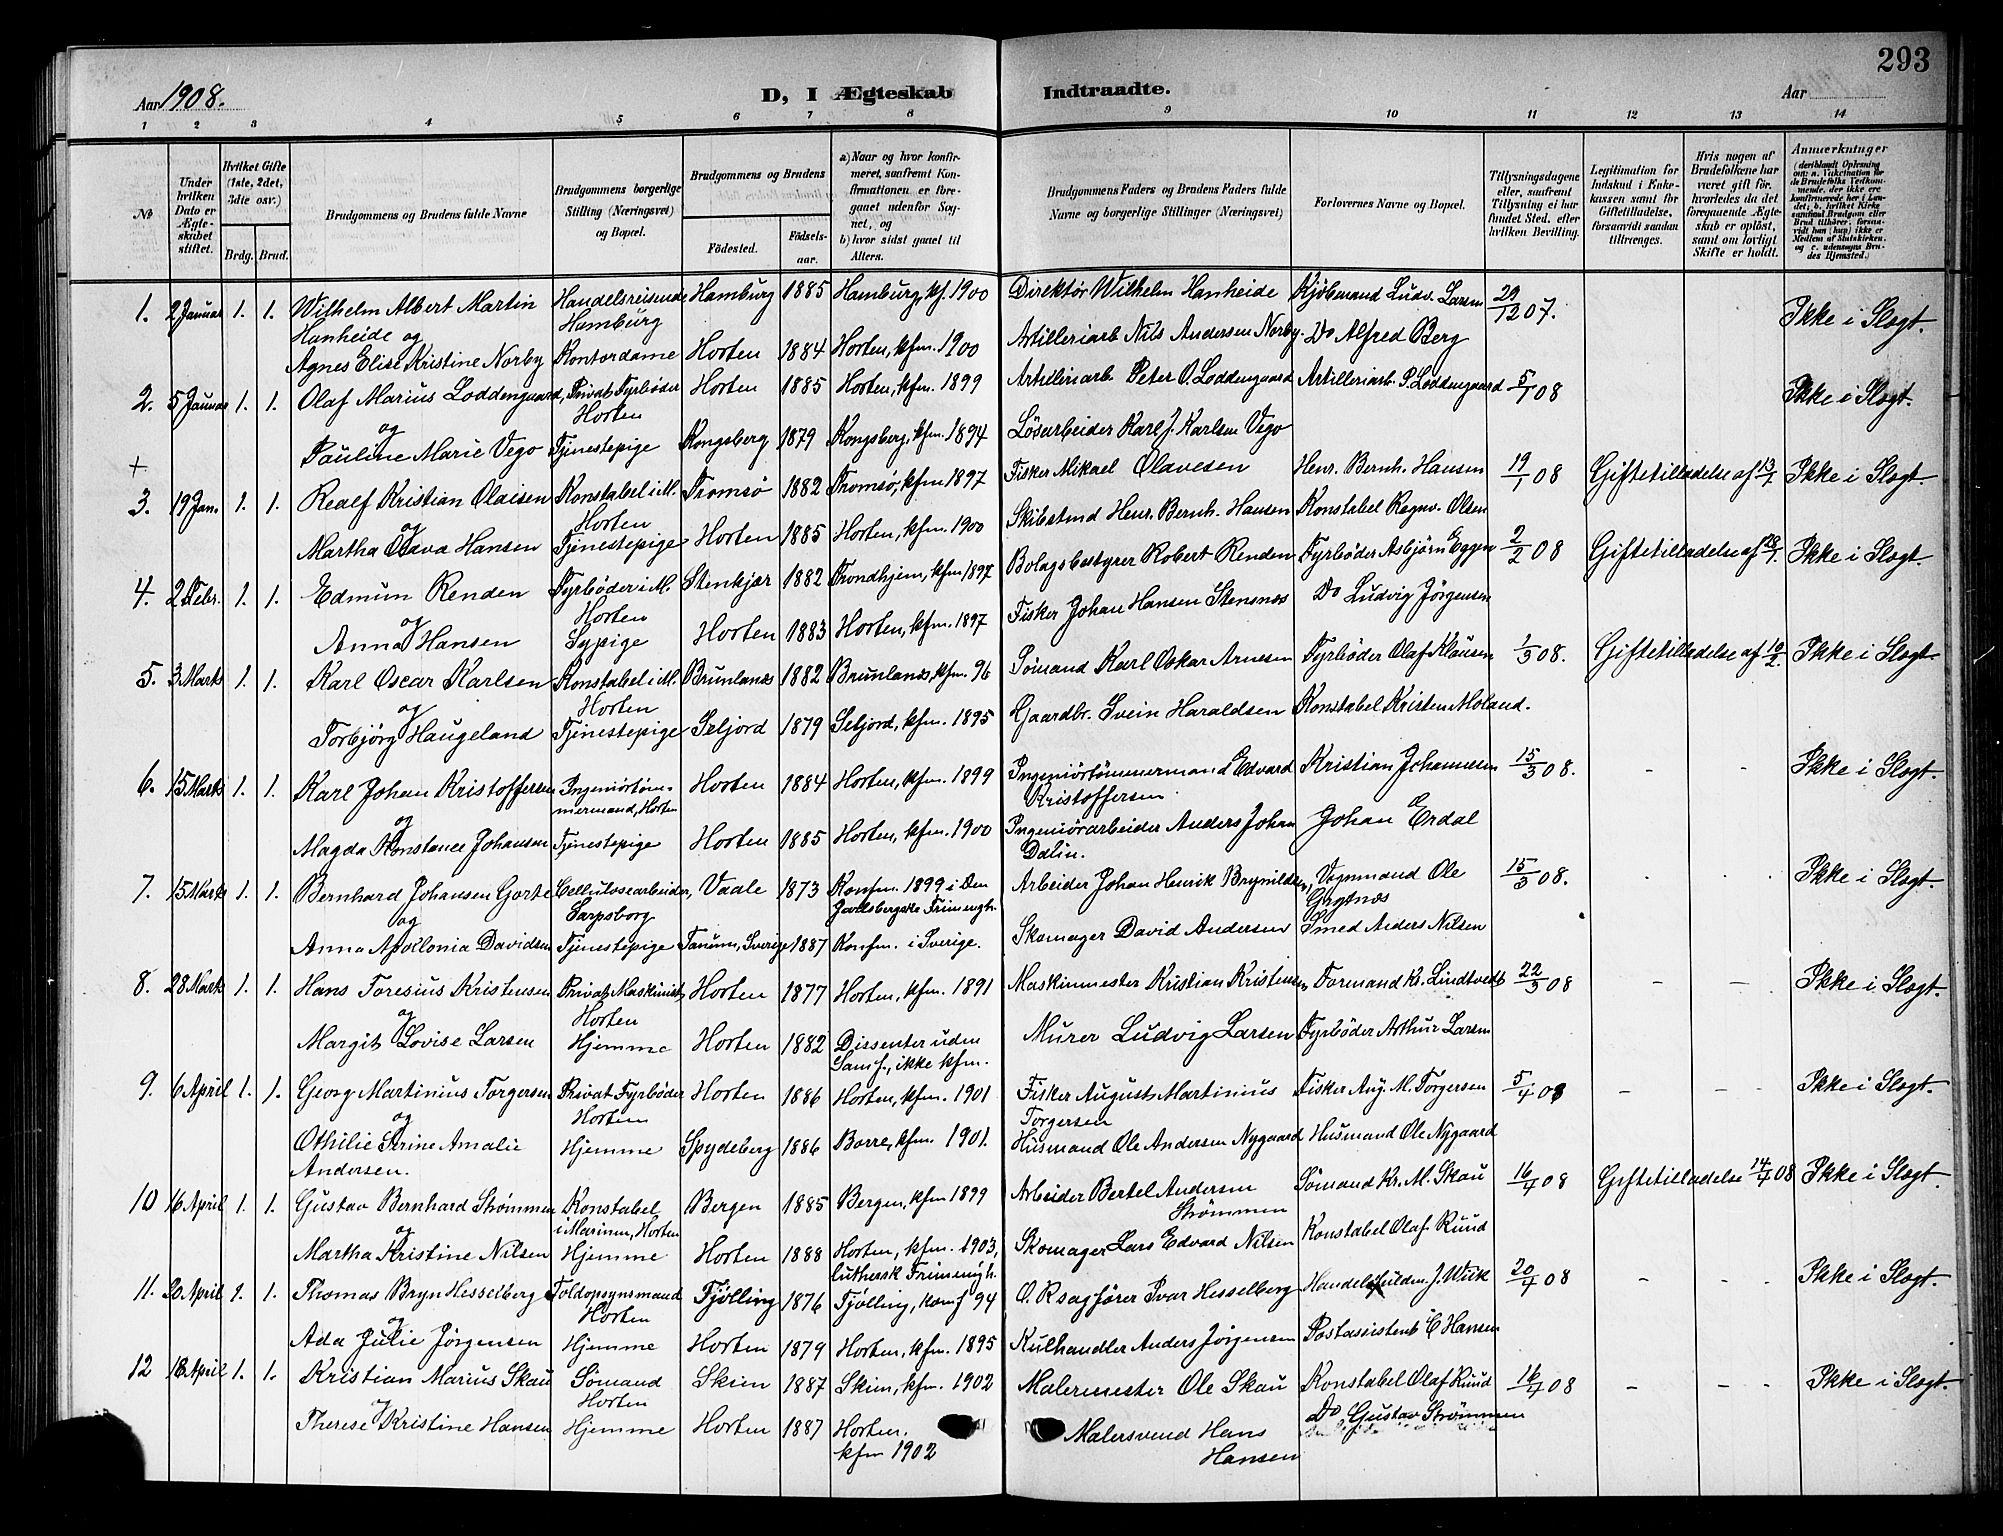 293
Aar 1908.
D, I Ægteskab Indtraadte.
Aar
1 2 3 4 5 6 7 8 9 10 11 12 13 14
№
Under hvilken Dato er Ægteskabet stiftet.
Hvilket Gifte (1ste, 2det, 3die osv.)
Brdg. Brud.
Brudgommens og Brudens fulde Navne
Brudgommens borgerlige Stilling (Næringsvei) og Bopæl.
Brudgommens og Brudens
Fødested.
Fødselsaar.
a) Naar og hvor konfirmeret, saafremt Konfirmationen er foregaaet udenfor Sognet, og
b) hvor sidst gaaet til Alters.
Brudgommens Faders og Brudens Faders fulde Navne og borgerlige Stillinger (Næringsvei)
Forlovernes Navne og Bopæl.
Tillysningsdagene eller, saafremt Tillysning ei har fundet Sted, efter hvilken Bevilling.
Legitimation for Indskud i Enkekassen samt for Giftetilladelse, forsaavidt saadan tiltrænges.
Hvis nogen af Brudefolkene har været gift før, hvorledes da det foregaaende Ægteskab er opløst, samt om lovligt Skifte er holdt.
Anmærkninger
1. 2 Januar 1. 1. Wilhelm Albert Martin Handelsreisende Hamburg 1885 Hamburg, kf. 1900 Direktör Wilhelm Hanheide Kjöbmand Ludv. Larsen 29/12 07. Ikke i Slægt.
Hanheide og Hamburg
Agnes Elise Kristine Norby Kontordame Horten 1884 Horten, kfm. 1900 Artilleriarb Nils Andersen Norby Do Alfred Berg
2. 5 Januar 1. 1. Olaf Marius Loddengaard, Privat Fyrbøder Horten 1885 Horten, kfm. 1899 Artilleriarb. Peter O. Loddengaard Artilleriarb. P. Loddengaard 5/1 08 Ikke i Slægt.
og Horten
Pauline Marie Vego Tjenestepige Kongsberg 1879 Kongsberg, kfm. 1894 Løsarbeider Karl J. Karlsen Vego
+
3. 19 Jan. 1. 1. Realf Kristian Olaisen Konstabel i M. Tromsø 1882 Tromsø, kfm 1897 Fisker Mikael Olavesen Henr. Bernh. Hansen 19/1 08 Giftetilladelse af 13/1 Ikke i Slægt.
og Horten
Martha Olava Hansen Tjenestepige Horten 1885 Horten, kfm. 1900 Skibstmd Henr. Bernh. Hansen Konstabel Ragnv. Olsen
4. 2 Febr. 1. 1. Edmun Renden Fyrbøder i M. Stenkjær 1882 Trondhjem, kfm 1897 Bolagsbestyrer Robert Renden Fyrbøder Asbjørn Eggen 2/2 08 Giftetilladelse af 28/1. Ikke i Slægt.
og Horten
Anna Hansen Sypige Horten 1883 Horten, kfm. 1897 Fisker Johan Hansen Stensnæs Do Ludvig Jørgensen
5. 3 Marts 1. 1. Karl Oscar Karlsen Konstabel i M. Brunlanæs 1882 Brunlanæs, kfm. 96 Sømand Karl Oskar Arnesen Fyrbøder Olaf Klausen 1/3 08. Giftetilladelse af 19/2. Ikke i Slægt.
og Horten
Torbjørg Haugeland Tjenestepige Seljord 1879 Seljord, kfm. 1895 Gaardbr. Svein Haraldsen Konstabel Kristen Moland.
6. 15 Marts 1. 1. Karl Johan Kristoffersen Ingeniörtöm- Horten 1884 Horten, kfm. 1899 Ingeniörtömmermand Edvard Kristian Johannesen 15/3 08. - - Ikke i Slægt.
og mermand, Horten Kristoffersen
Magda Konstance Johansen Tjenestepige Horten 1885 Horten, kfm. 1900 Ingeniörarbeider Anders Johan Johan Erdal
Dalin.
7. 15 Marts 1. 1. Bernhard Johansen Gorte Cellulosearbeider, Vaale 1873 Konfm. 1899 i Den Arbeider Johan Henrik Brynildsen, Vognmand Ole 15/3 08. Ikke i Slægt.
og Sarpsborg Jarlsbergske Frimengh. Grytnæs
Anna Apollonia Davidsen Tjenestepige Tanum, Sverige 1887 Konfm. i Sverige. Skomager David Andersen Smed Anders Nilsen
8. 28 Marts 1. 1. Hans Toresius Kristensen Privat Maskinist Horten 1877 Horten, kfm. 1891 Maskinmester Kristian Kristensen Formand Kr. Lindtvedt 22/3 08 - - Ikke i Slægt.
og Horten
Margit Lovise Larsen Hjemme Horten 1882 Dissenter uden Murer Ludvig Larsen Fyrbøder Arthur Larsen
Samf., ikke kfm.
9. 6 April 1. 1. Georg Martinius Torgersen Privat Fyrbøder Horten 1886 Horten, kfm. 1901 Fisker August Martinius Fisker Aug. M. Torgersen 5/4 08 - - Ikke i Slægt.
og Horten Torgersen
Othilie Strine Amalie Hjemme Spydeberg 1886 Borre, kfm. 1901. Husmand Ole Andersen Nygaard Husmand Ole Nygaard
Andersen.
10 16 April 1. 1. Gustav Bernhard Strømmen Konstabel Bergen 1885 Bergen, kfm 1899 Arbeider Bertel Andersen Sömand Kr. M. Skau 16/4 08 Giftetilladelse 14/4 08 Ikke i Slægt.
og i Marinen, Horten Strømmen
Martha Kristine Nilsen Hjemme Horten 1888 Horten, kfm. 1903, Skomager Lars Edvard Nilsen Konstabel Olaf Ruud
luthersk Frimengh.
11. 20 April 1. 1. Thomas Bryn Hesselberg Toldopsynsmand Tjølling 1876 Tjølling, konf 94 O. R sagfører Ivar Hesselberg Handelsfuldm. J. Wiik 20/4 08 - - Ikke i Slægt.
og Horten
Ada Julie Jørgensen Hjemme Horten 1879 Horten, kfm. 1895 Kulhandler Anders Jørgensen Postassistent C Hansen
12 18 April 1. 1. Kristian Marius Skau Sömand Skien 1887 Skien, kfm. 1902 Malermester Ole Skau Konstabel Olaf Ruud 16/4 08 - - Ikke i Slægt.
og Horten
Therese Kristine Hansen Hjemme Horten 1887 Horten. Malersvend Hans Do Gustav Strømmen
kfm 1902 Hansen